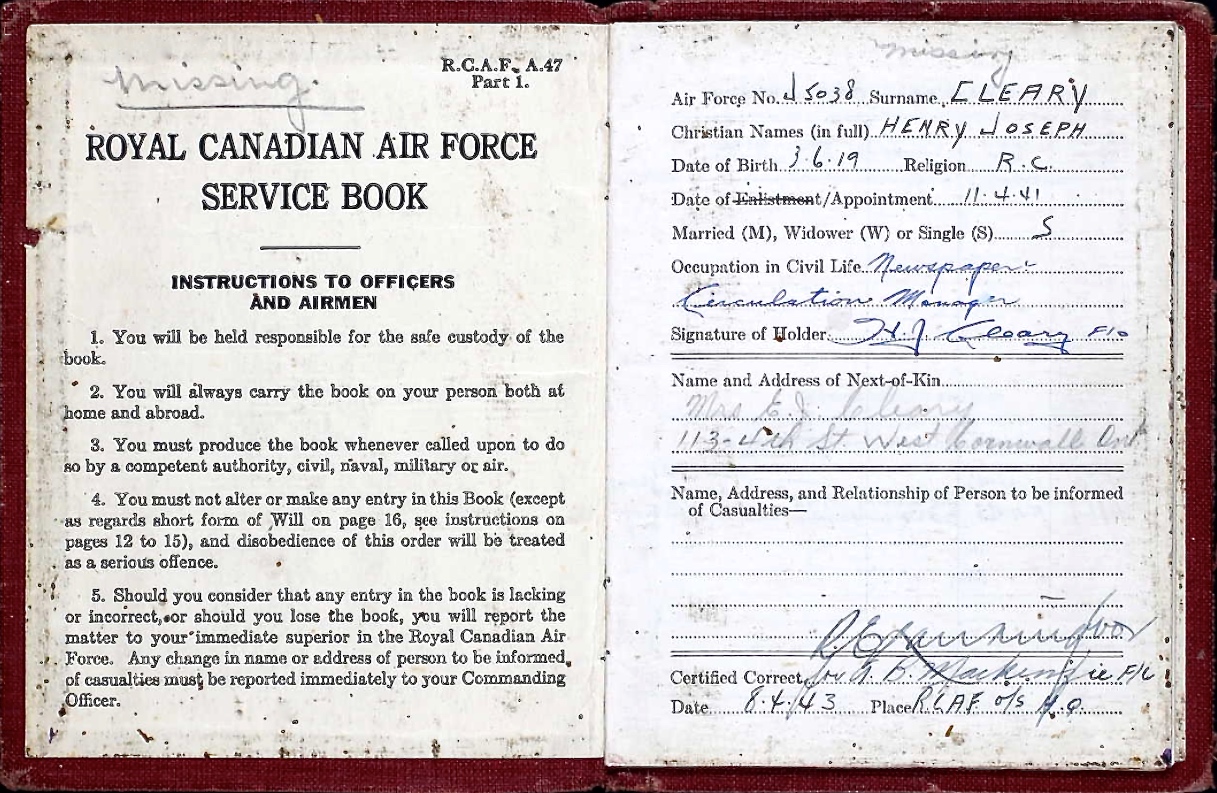 missing.
R.C.A.F. A.47
Part 1.
ROYAL CANADIAN AIR FORCE
SERVICE BOOK
INSTRUCTIONS TO OFFICERS
AND AIRMEN
1. You will be held responsible for the safe custody of the
book.
2. You will always carry the book on your person both at
home and abroad.
3. You must produce the book whenever called upon to do
so by a competent authority, civil, naval, military or air.
4. You must not alter or make any entry in this Book (except
as regards short form of Will on page 16, see instructions on
pages 12 to 15), and disobedience of this order will be treated
as a serious offence.
5. Should you consider that any entry in the book is lacking
or incorrect, or should you lose the book, you will report the
matter to your immediate superior in the Royal Canadian Air
Force. Any change in name or address of person to be informed
of casualties must be reported immediately to your Commanding
Officer.
missing
Air Force No. J5038 Surname CLEARY
Christian Names (in full) HENRY JOSEPH
Date of Birth 3.6.19 Religion R.C.
Date of Enlistment/Appointment 11.4.41
Married (M), Widower (W) or Single (S) S
Occupation in Civil Life Newspaper
Circulation Manager
Signature of Holder H.J. Cleary F/O
Name and Address of Next-of-Kin
Mrs E.J. Cleary
113- 4th St West Cornwall Ont
Name, Address, and Relationship of Person to be informed
of Casualties—
Certified Correct, for B. Mackenzie F/L
Date 8.4.43 Place RCAF o/s H.Q.